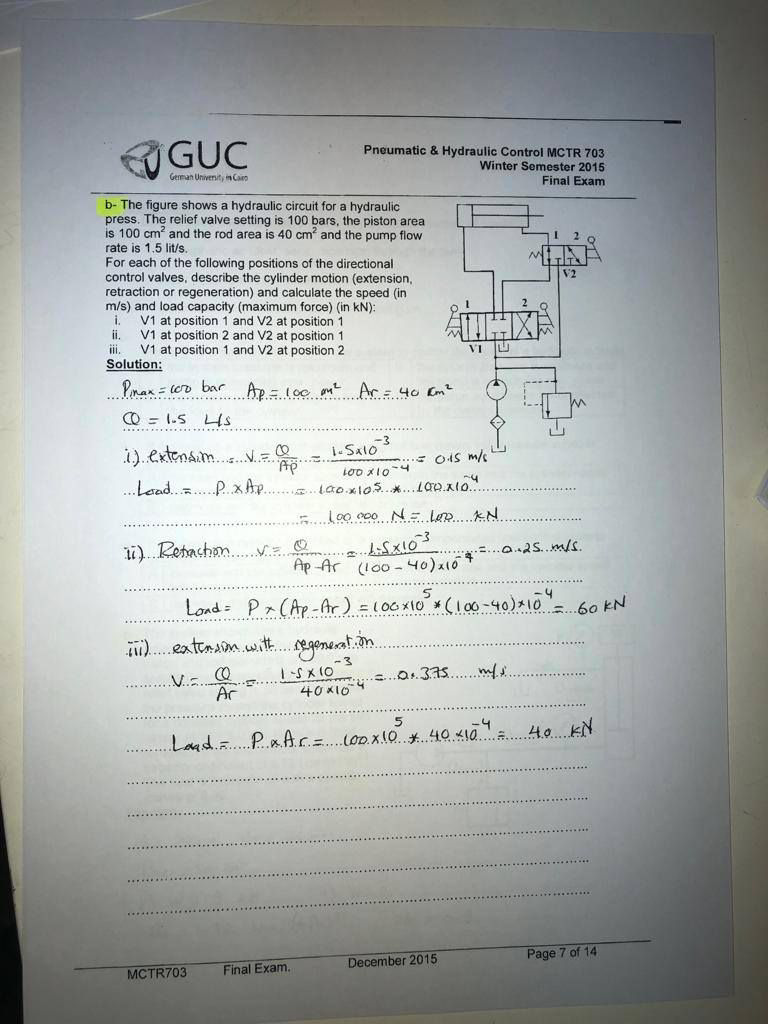 GUC
German University in Cairo
Pneumatic & Hydraulic Control MCTR 703
Winter Semester 2015
Final Exam
b- The figure shows a hydraulic circuit for a hydraulic
press. The relief valve setting is 100 bars, the piston area
is 100 cm² and the rod area is 40 cm² and the pump flow
rate is 1.5 lit/s.
For each of the following positions of the directional
control valves, describe the cylinder motion (extension,
retraction or regeneration) and calculate the speed (in
m/s) and load capacity (maximum force) (in kN):
i. V1 at position 1 and V2 at position 1
ii. V1 at position 2 and V2 at position 1
iii. V1 at position 1 and V2 at position 2
Solution:
1 2
V2
1 2
V1
Pmax = 100 bar Ap = 100 cm² Ar = 40 cm²
Q = 1.5 L/s
i) extension = V = Q/Ap = 1.5x10⁻³ / 100 x10⁻⁴ = 0.15 m/s
Load = P x Ap = 100 x10⁵ * 100 x10⁻⁴
= 100 000 N = 100 kN
ii) Retraction V = Q / Ap - Ar = 1.5 x10⁻³ / (100 - 40) x10⁻⁴ = 0.25 m/s
Load = P x (Ap - Ar) = 100 x10⁵ * (100-40) x10⁻⁴ = 60 kN
iii) extension with regeneration
V = Q/Ar = 1.5 x10⁻³ / 40 x10⁻⁴ = 0.375 m/s
Load = P x Ar = 100 x10⁵ * 40 x10⁻⁴ = 40 kN
MCTR703 Final Exam. December 2015 Page 7 of 14